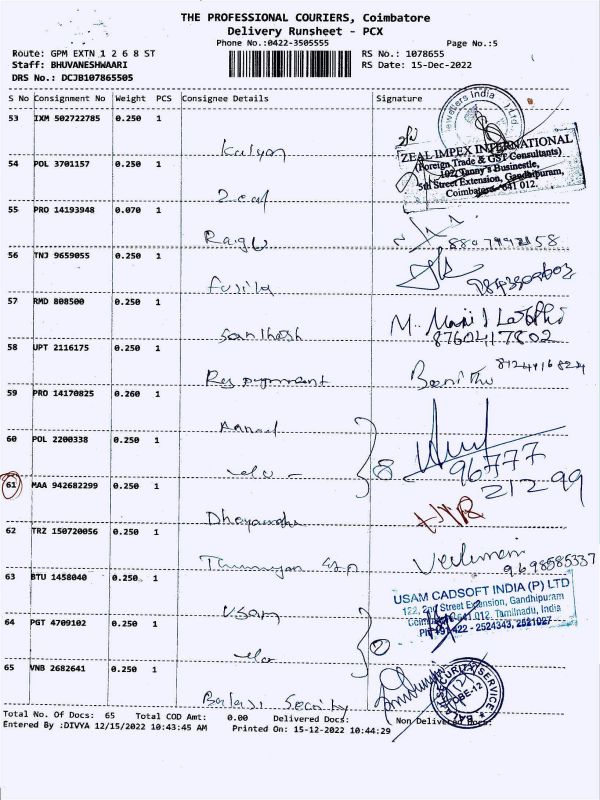 THE PROFESSIONAL COURIERS, Coimbatore
Delivery Runsheet - PCX
Phone No.:0422-3505555 Page No.:5
Route: GPM EXTN 1 2 6 8 ST RS No.: 1078655
Staff: BHUVANESHWAARI RS Date: 15-Dec-2022
DRS No.: DCJB107865505
S No Consignment No Weight PCS Consignee Details Signature
53 IXM 502722785 0.250 1
Kalyan
Jewellers India Ltd
ZEAL IMPEX INTERNATIONAL
(Foreign Trade & GST Consultants)
102, Tanny's Businestle,
5th Street Extension, Gandhipuram,
Coimbatore - 641 012.
54 POL 3701157 0.250 1
Zeal
55 PRO 14193948 0.070 1
Ragu
56 TNJ 9659055 0.250 1
57 RMD 808500 0.250 1
Santhosh
8760417802
58 UPT 2116175 0.250 1
59 PRO 14170825 0.260 1
Aanad
60 POL 2200338 0.250 1
8 96777
21299
61 MAA 942682299 0.250 1
62 TRZ 150720056 0.250 1
9698585337
63 BTU 1458040 0.250 1
Usam
USAM CADSOFT INDIA (P) LTD
122, 2nd Street Extension, Gandhipuram
Coimbatore-641 012. Tamilnadu, India
Ph: +91-422 - 2524343, 2521027
64 PGT 4709102 0.250 1
65 VNB 2682641 0.250 1
Balaji Security
Total No. Of Docs: 65 Total COD Amt: 0.00 Delivered Docs: Non Delivered Docs:
Entered By :DIVYA 12/15/2022 10:43:45 AM Printed On: 15-12-2022 10:44:29